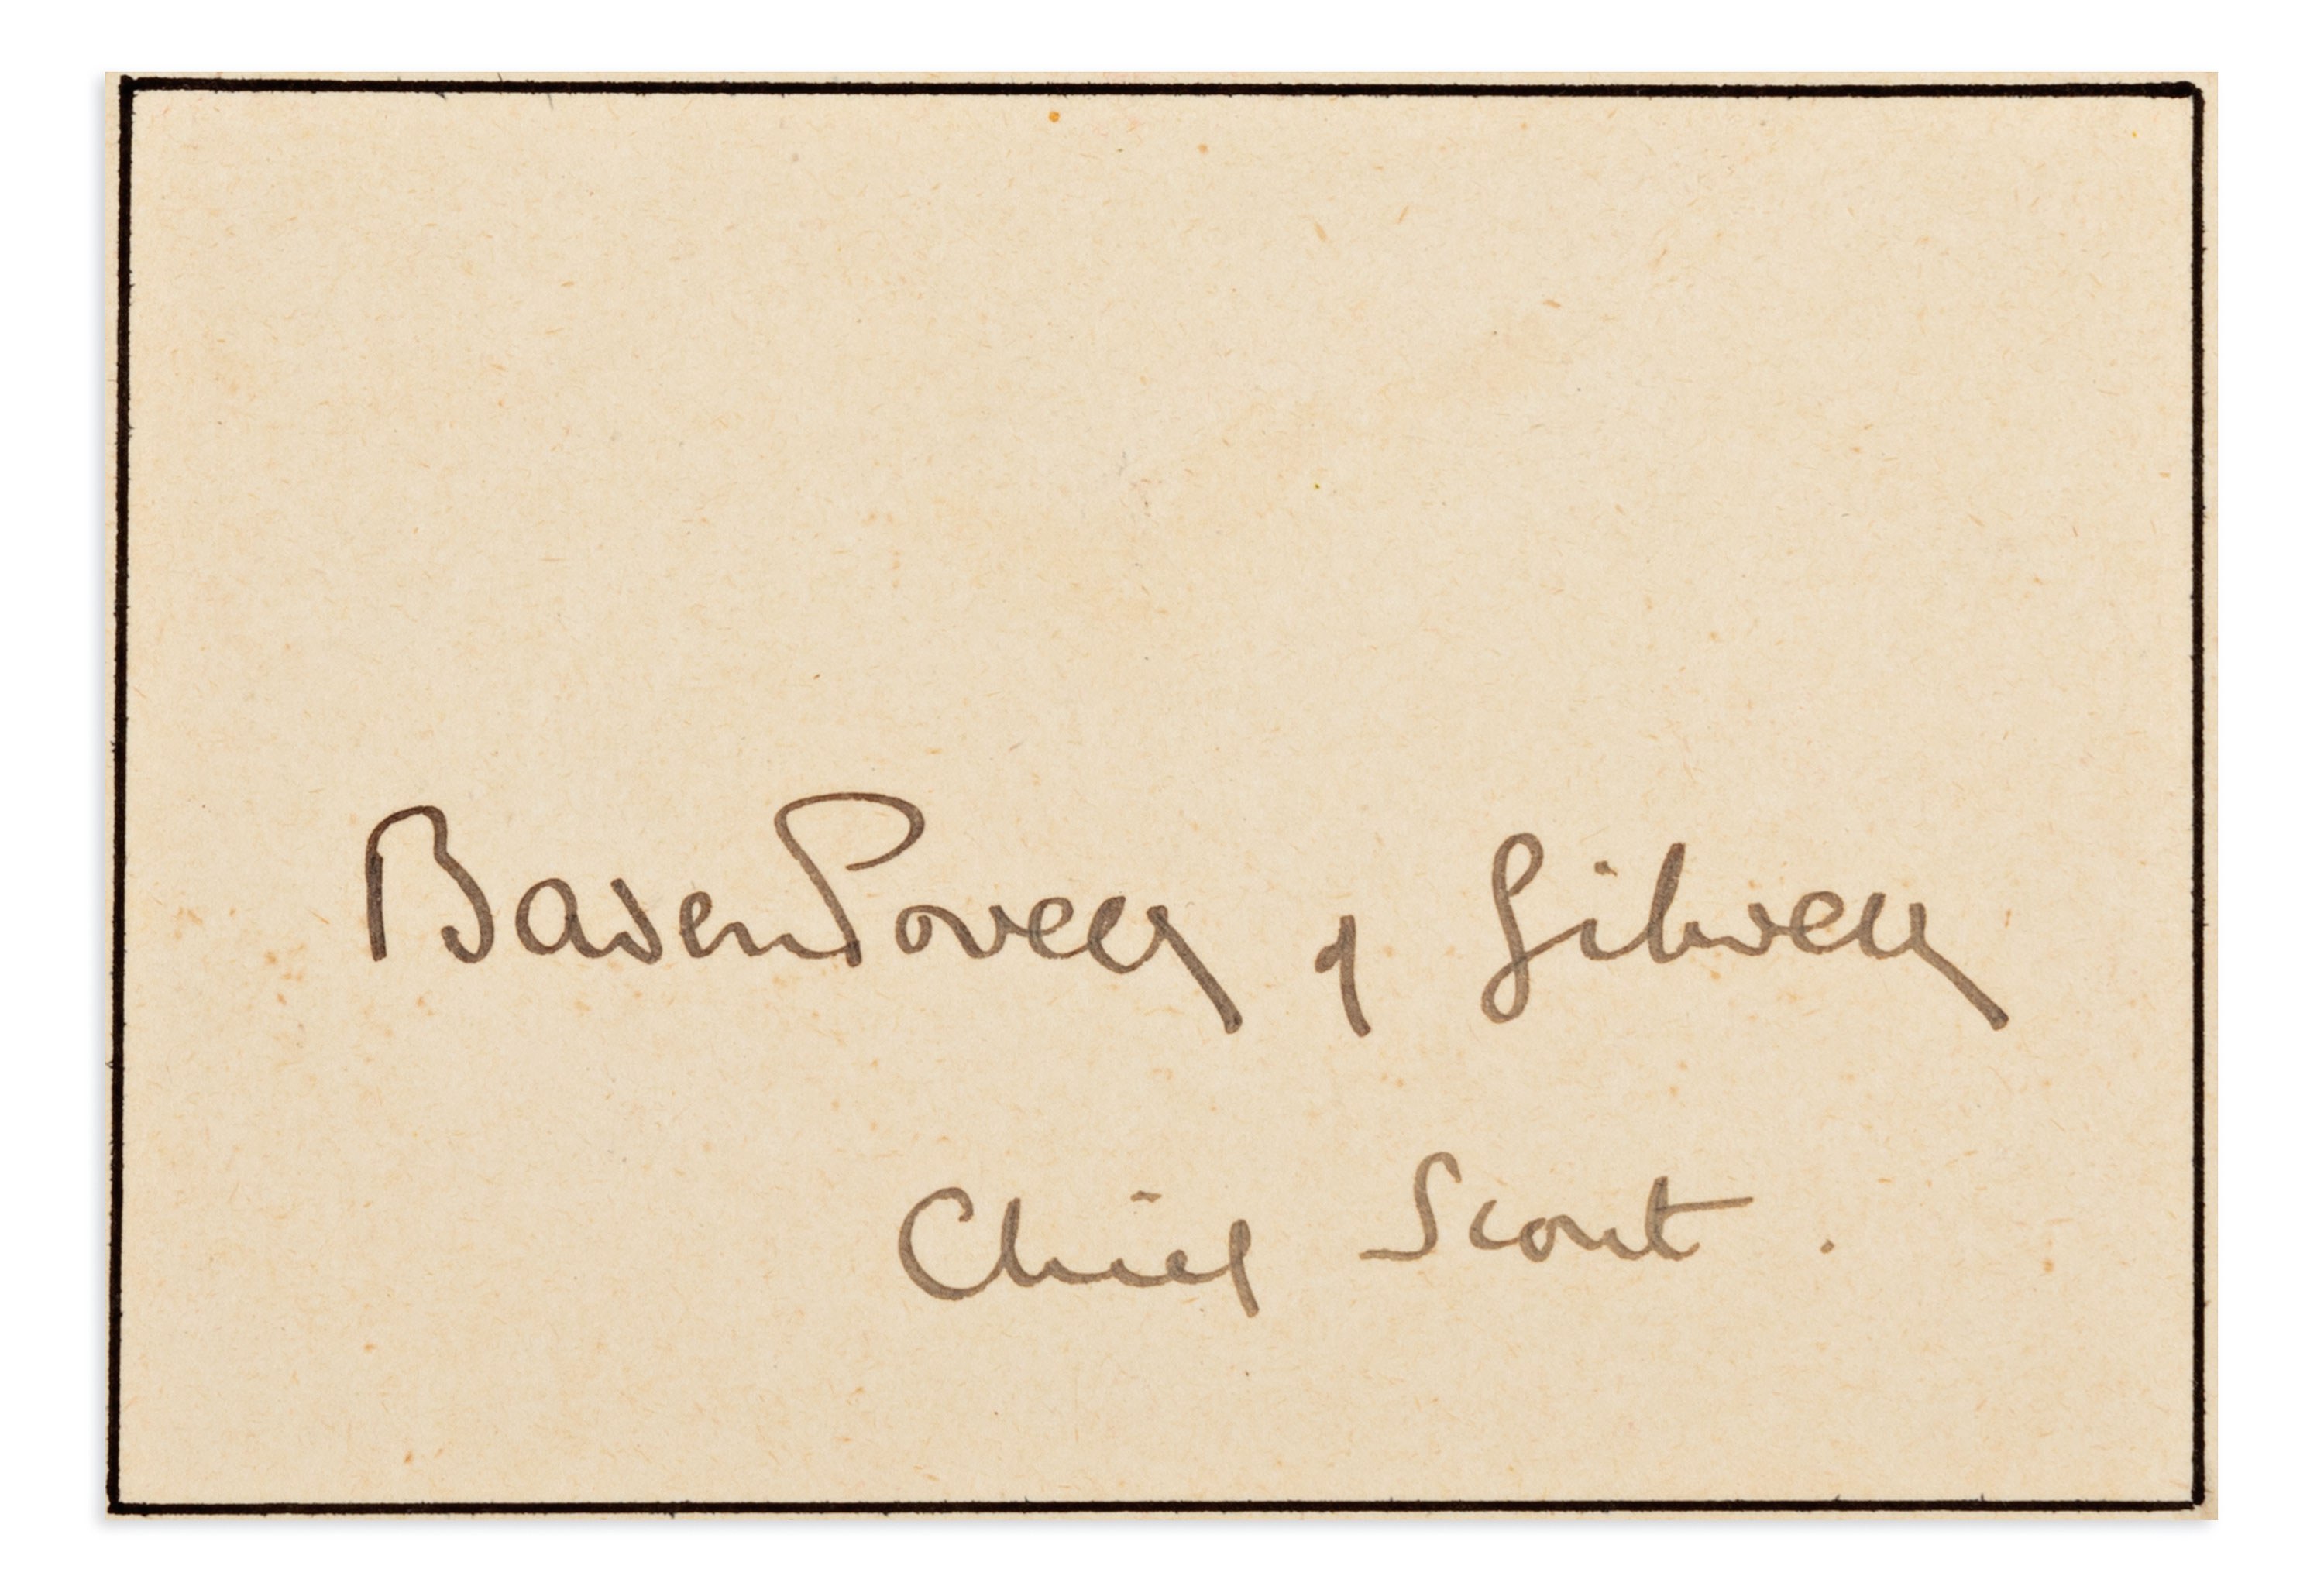 Baden Powell of Gilwell
Chief Scout.